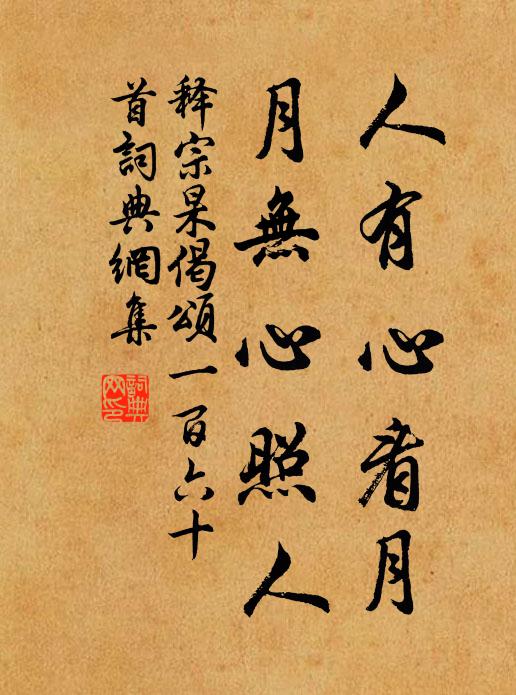 人有心看月
月無心照人
释宗杲偈頌一百六十
首詞典網集
詞典网印